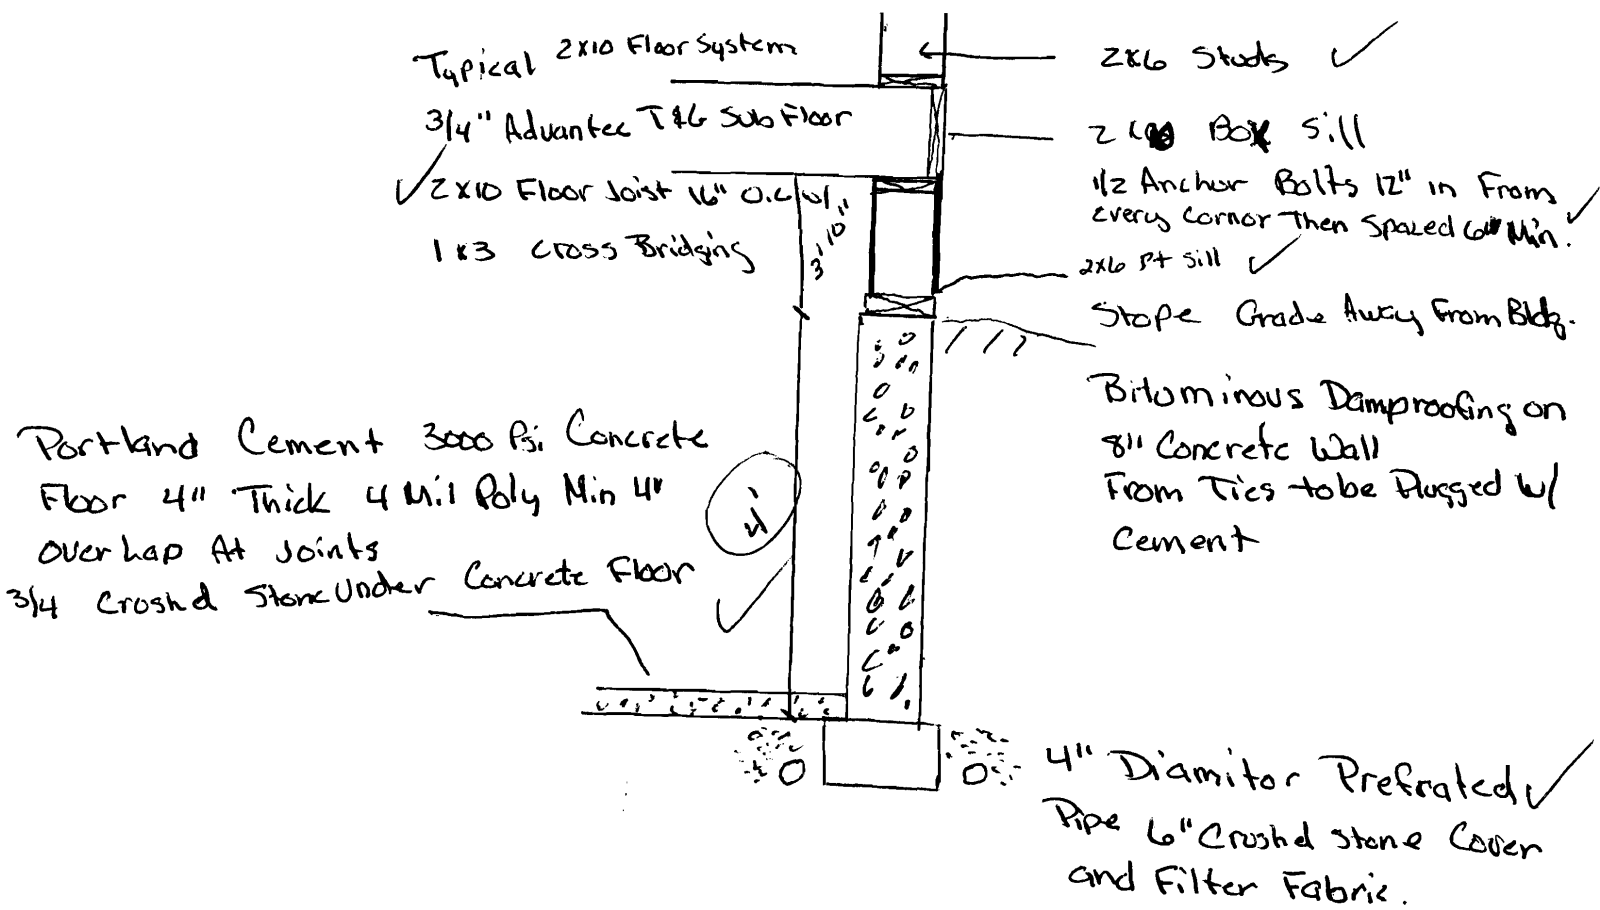 Typical 2x10 Floor System
3/4" Advantec T&G Sub Floor
2x10 Floor Joist 16" O.C w/
1x3 Cross Bridging
3' 10"
2x6 Studs
2 Box Sill
1/2 Anchor Bolts 12" in From
Every Cornor Then Spaced 6" Min.
2x6 Pt Sill
Slope Grade Away From Bldg.
Bituminous Damproofing on
8" Concrete Wall
From Ties to be Plugged w/
Cement
Portland Cement 3000 Psi Concrete
Floor 4" Thick 4 Mil Poly Min 4"
Over Lap At Joints
3/4 Croshd Stone Under Concrete Floor
4'
4" Diamitor Prefrated
Pipe 6" Croshd Stone Cover
and Filter Fabric.